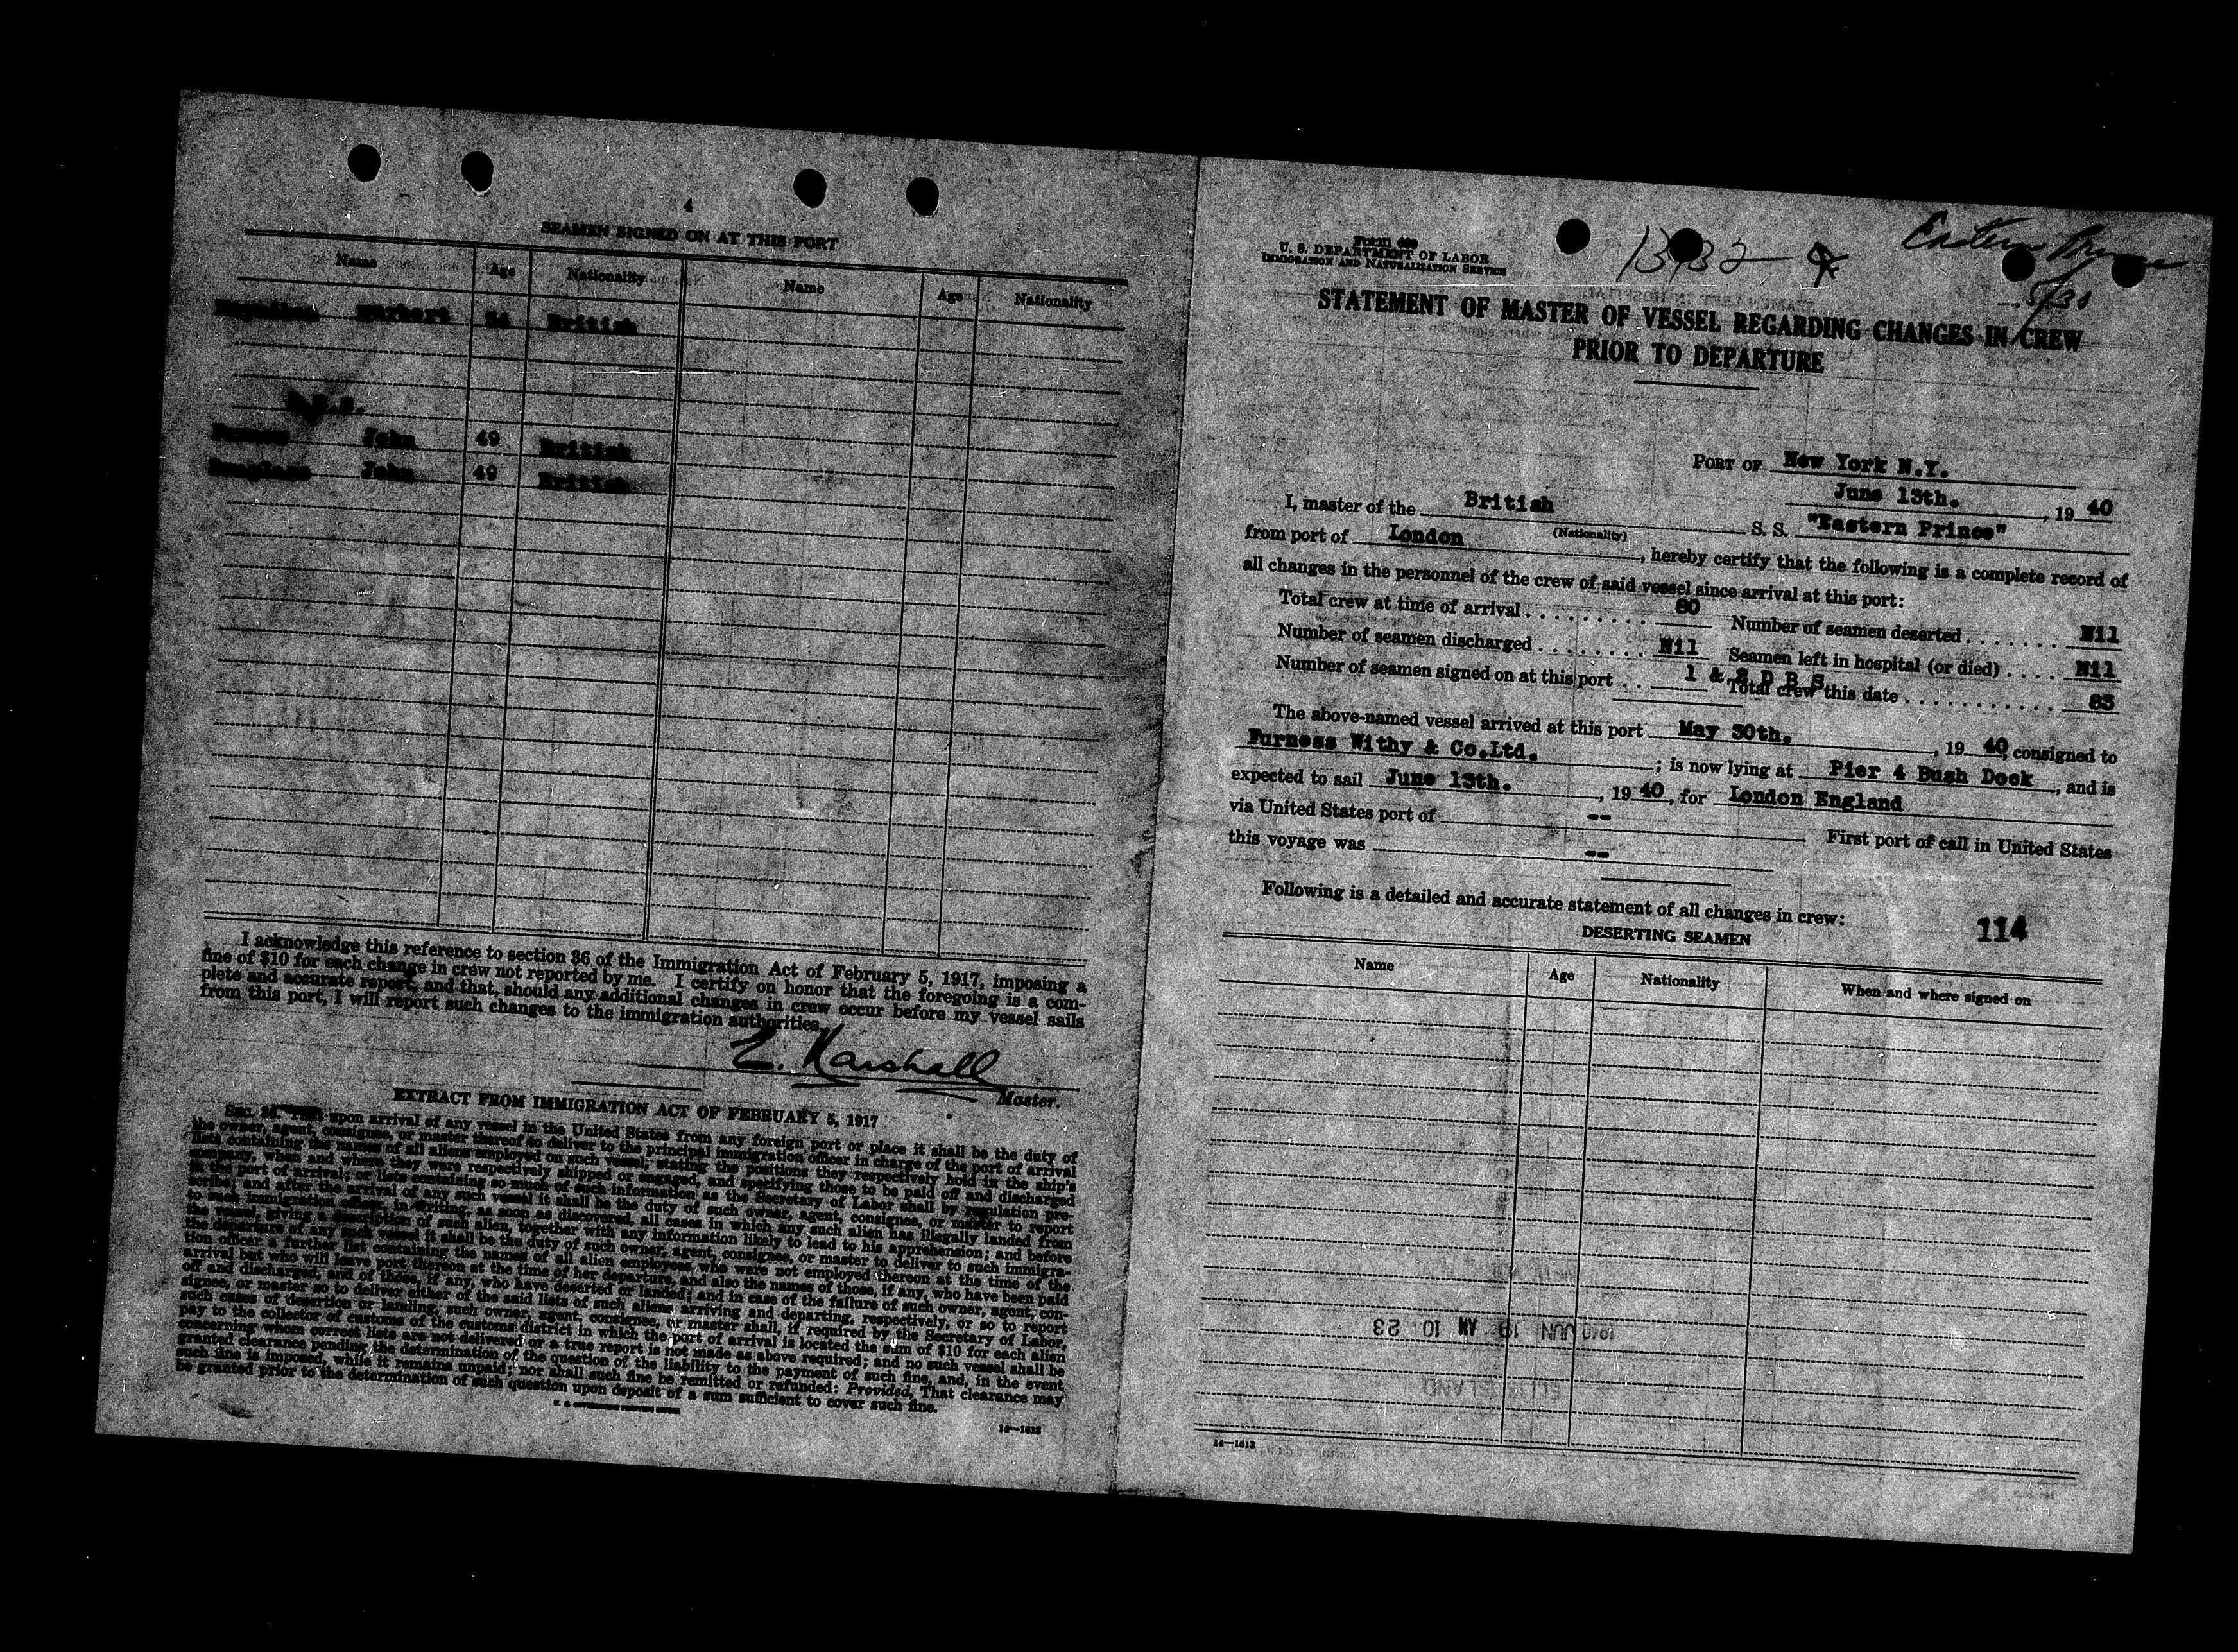 4
SEAMEN SIGNED ON AT THIS PORT
Name Age Nationality Name Age Nationality
Herbert British
D.B.S.
John 49 British
Douglass John 49 British
I acknowledge this reference to section 36 of the Immigration Act of February 5, 1917, imposing a
fine of $10 for each change in crew not reported by me. I certify on honor that the foregoing is a com-
plete and accurate report, and that, should any additional changes in crew occur before my vessel sails
from this port, I will report such changes to the immigration authorities.
Master.
EXTRACT FROM IMMIGRATION ACT OF FEBRUARY 5, 1917
Sec. 36. That upon arrival of any vessel in the United States from any foreign port or place it shall be the duty of
the owner, agent, consignee, or master thereof to deliver to the principal immigration officer in charge of the port of arrival
lists containing the names of all aliens employed on such vessel, stating the positions they respectively hold in the ship's
company, when and where they were respectively shipped or engaged, and specifying those to be paid off and discharged
in the port of arrival; or lists containing so much of such information as the Secretary of Labor shall by regulation pre-
scribe; and after the arrival of any such vessel it shall be the duty of such owner, agent, consignee, or master to report
to such immigration officer, in writing, as soon as discovered, all cases in which any such alien has illegally landed from
the vessel, giving a description of such alien, together with any information likely to lead to his apprehension; and before
the departure of any such vessel it shall be the duty of such owner, agent, consignee, or master to deliver to such immigra-
tion officer a further list containing the names of all alien employees who were not employed thereon at the time of the
arrival but who will leave port thereon at the time of her departure, and also the names of those, if any, who have been paid
off and discharged, and of those, if any, who have deserted or landed; and in case of the failure of such owner, agent, con-
signee, or master so to deliver either of the said lists of such aliens arriving and departing, respectively, or so to report
such cases of desertion or landing, such owner, agent, consignee, or master shall, if required by the Secretary of Labor,
pay to the collector of customs of the customs district in which the port of arrival is located the sum of $10 for each alien
concerning whom correct lists are not delivered or a true report is not made as above required; and no such vessel shall be
granted clearance pending the determination of the question of the liability to the payment of such fine, and, in the event
such fine is imposed, while it remains unpaid; nor shall such fine be remitted or refunded: Provided, That clearance may
be granted prior to the determination of such question upon deposit of a sum sufficient to cover such fine.
U. S. GOVERNMENT PRINTING OFFICE
14—1613
Eastern Prince
5/30
Form 689
U. S. DEPARTMENT OF LABOR
IMMIGRATION AND NATURALIZATION SERVICE
STATEMENT OF MASTER OF VESSEL REGARDING CHANGES IN CREW
PRIOR TO DEPARTURE
PORT OF New York N.Y.
June 13th. , 19 40
I, master of the British S. S. "Eastern Prince"
(Nationality)
from port of London , hereby certify that the following is a complete record of
all changes in the personnel of the crew of said vessel since arrival at this port:
Total crew at time of arrival . . . . . . . . . 80 Number of seamen deserted . . . . . . . Nil
Number of seamen discharged . . . . . . . . Nil Seamen left in hospital (or died) . . . . Nil
Number of seamen signed on at this port . . 1 & 2 D B S Total crew this date . . . . . . . . . . . . 83
The above-named vessel arrived at this port May 30th. , 19 40 consigned to
Furness Withy & Co.Ltd. ; is now lying at Pier 4 Bush Dock , and is
expected to sail June 13th. , 19 40 , for London England
via United States port of -- First port of call in United States
this voyage was --
Following is a detailed and accurate statement of all changes in crew:
114
DESERTING SEAMEN
Name Age Nationality When and where signed on
1940 JUN 19 AM 10 23
ELLIS ISLAND
14—1613